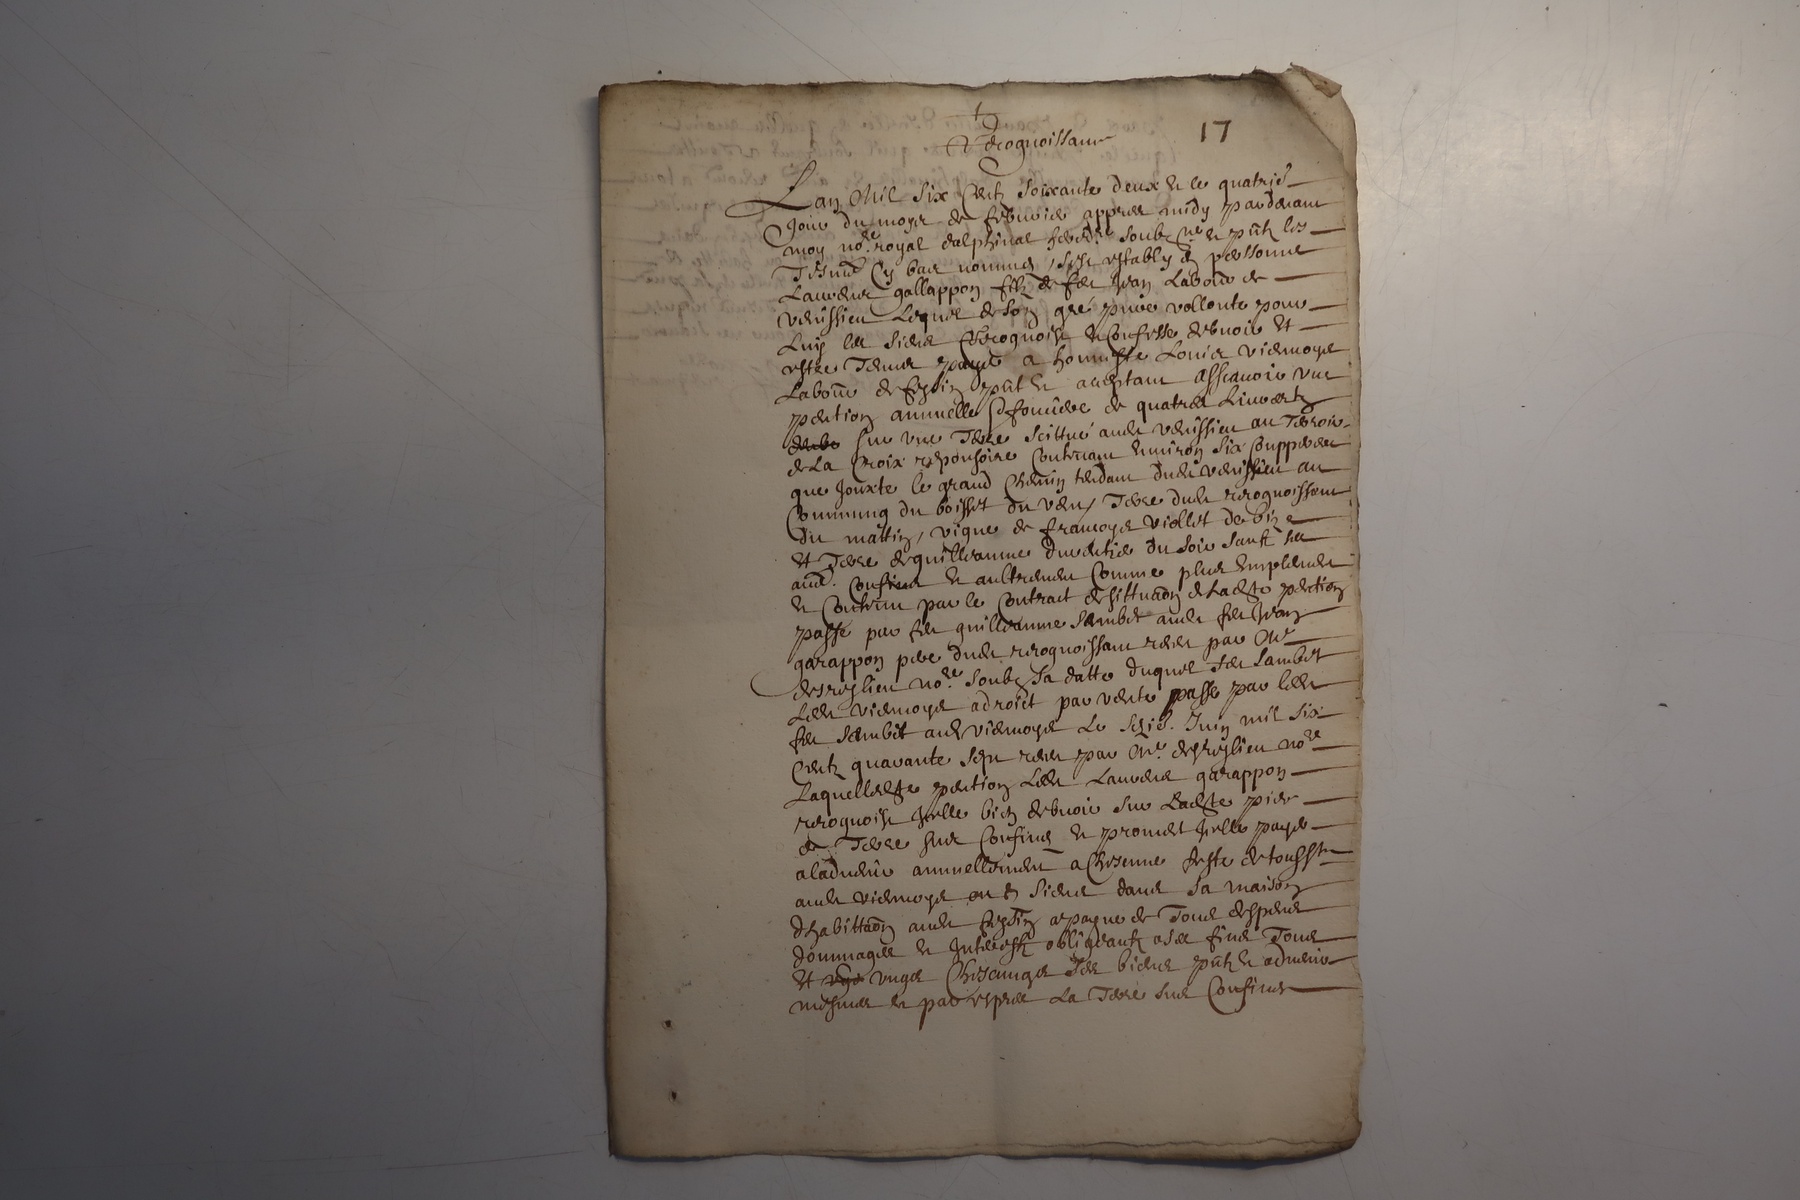 17
Recognoissance
Lan Mil Six Centz Soixante deux et le quatrie
Jour du moys de febvrier appres midy pardevant
moy no.re royal dalphinal soubz.ne et pntz les
Tesmd Cy bas nommes, sest establÿ en personne
Laurens gallappon filz de feu Jean Labour de
venissieu Lequel de son gré pure vollonte pour
Luy les siens Recognoist et Confesse debvoir et
estre Tenus payer a honneste Louis viemoys
Labour de feyzin pnt et aceptant assavoir une
pention annuelle fonciere de quatres Livres
sur une Terre scittué audt venissieu au Terroir
de La Croix reposoire Contenant Environ six Coupperees
que Jouxte le grand Chemin tendant dudt venissieu au
Communq du boisset du vent, Terre dudt recognoissant
du mattin, vigne de françoys viollet de bize
et Terre de guilleaume du soir sauf ses
aud. Confins et aultrement Comme plus Emplement
et Contenu par le Contract de Ladte pention
passé par feu guilleaume Sambet audt feu Jean
garappon pere dudt recognoissant receu par Me
no.re soubz sa datte duquel feu Sambet
Ledt viemoys adroict par vente passé par ledt
feu Sambet aud viemoys Le Juin mil six
Centz quarante sept receu par Me no.re
Laquelledte pention Ledt Laurens garappon
recognoist Jcelle bien debvoir sur Ladte piece
de Terre sus Confines et promet Jcelle payer
aladvenir annuellement a Chescune feste de toussts
audt viemoys ou es siens dans sa maison
dhabittaon audt feyzin apayne de Tous despens
dommages et Interestz obligeantz a ses fins Tous
et ungs Chescungs ses biens pntz et advenir
mesmes et par expres La Terre sus Confines